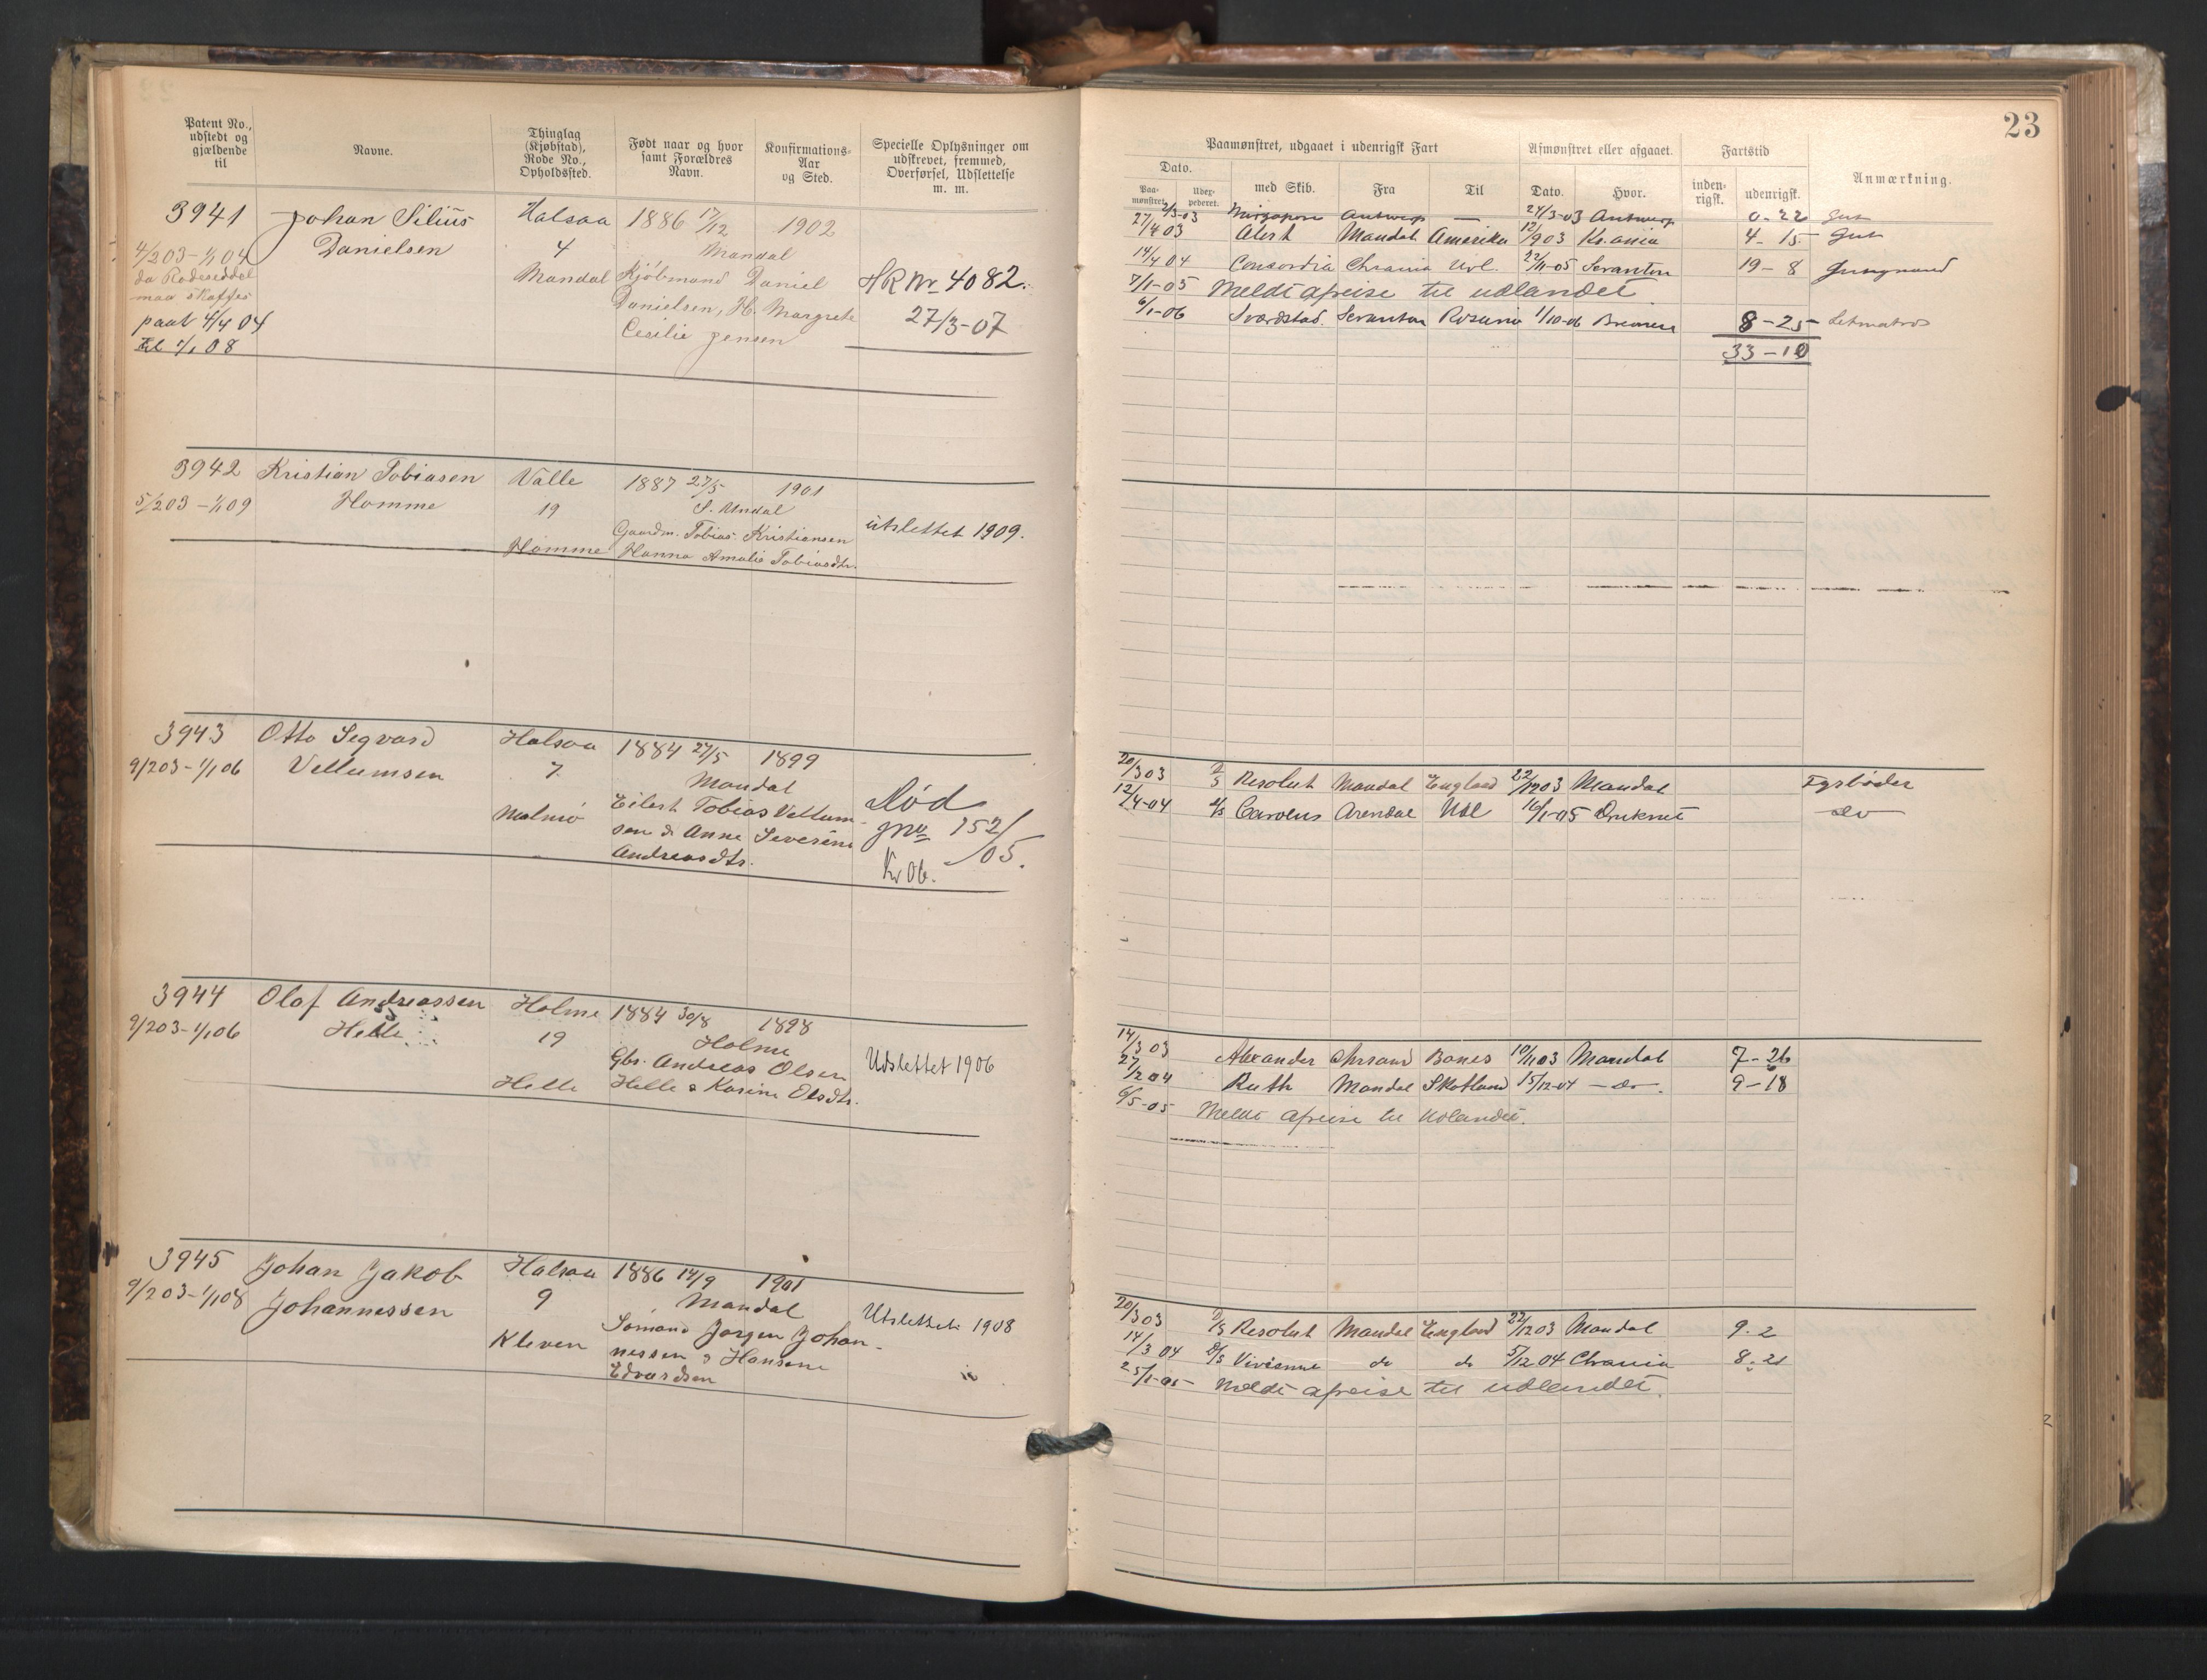 23
Patent No., udstedt og gjældende til
Navne.
Thinglag (Kjøbstad), Rode No., Opholdssted.
Født naar og hvor samt Forældres Navn.
Konfirmations-Aar og Sted.
Specielle Oplysninger om udskrevet, fremmed, Overførsel, Udslettelse m. m.
Paamønstret, udgaaet i udenrigsk Fart
Afmønstret eller afgaaet.
Fartstid
Anmærkning.
Dato.
Paa-mønstret.
Uder-pederet.
med Skib.
Fra
Til
Dato.
Hvor.
inden-rigsk.
udenrigsk.
3941 Johan Silius Halsaa 1886 17/12 1902
4/2 03 - 1/1 04 Danielsen 4 Mandal
da Rodeseddel Mandal Kjøbmand Daniel HRNr 4082.
maa skaffes Danielsen, H. Margrete 27/3-07
paat 4/4 04 Cecilie Jensen
til 1/1 08
2/3-03 Antwerp — 24/3-03 Antwerp 0-22 Gut
27/4 03 Alert Mandal Amerika 12/9 03 Kr.ania 4-15 Gut
14/4 04 Concordia Chrania Udl. 22/11-05 Scranton 19-8 Jungmand
7/1-05 Meldt afreise til udlandet.
6/1-06 Sværdstad. Scranton Rosario 1/10-06 Bremen 8-25 Letmatros
33-10
3942 Kristian Tobiasen Valle 1887 27/5 1901
5/2 03 - 1/1 09 Homme 19 S. Undal
Gaardm. Tobias Kristiansen utslettet 1909.
Homme Hanna Amalie Tobiasdtr.
3943 Otto Segvard Halsaa 1884 27/5 1899
9/2 03 - 1/1 06 Vellumsen 7 Mandal
Malmø Eilert Tobias Vellum-
sen & Anne Severine
Andreasdtr.
død
jno 152/05.
Kr 06.
20/3 03 D/S Resolut Mandal England 22/12 03 Mandal Fyrbøder
12/4-04 D/S Carolus Arendal Udl 16/1-05 Druknet do
3944 Olaf Andreassen Holme 1884 30/8 1898
9/2 03 - 1/1 06 Helle 19 Holme
Gbr. Andreas Olsen Udslettet 1906
Helle Helle & Karine Olsdtr.
14/3 03 Alexander Chrsand Bones 10/11 03 Mandal 7-26
27/2 04 Ruth Mandal Skotland 15/12-04 — do — 9-18
6/5-05 Meldt afreise til Udlandet.
3945 Johan Jakob Halsaa 1886 14/9 1901
9/2 03 - 1/1 08 Johannessen 9 Mandal
Kleven Sømand Jørgen Johan- Utslettet 1908
nessen & Hansene
Edvardsen
20/3 03 D/S Resolut Mandal England 22/12 03 Mandal 9-2
14/3 04 D/S Vivienne do do 5/12 04 Chrania 8-21
25/1-05 Meldt afreise til udlandet.